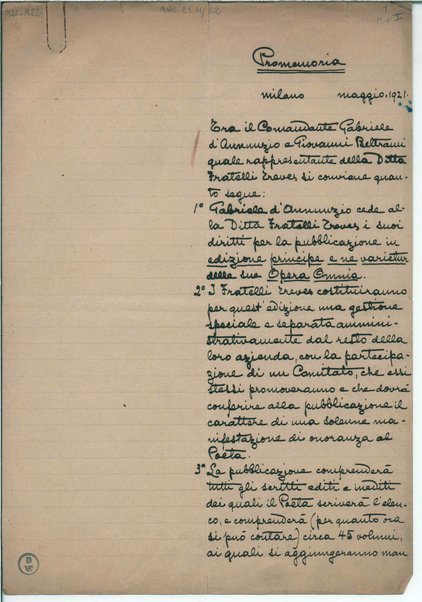 ARC. 82 11/62
I
Promemoria
Milano maggio. 1921.
Tra il Comandante Gabriele
d'Annunzio e Giovanni Beltrami
quale rappresentante della Ditta
Fratelli Treves si conviene quan-
to segue:
1° Gabriele d'Annunzio cede al-
la Ditta Fratelli Treves i suoi
diritti per la pubblicazione in
edizione principe e ne varietur
della sua Opera Omnia.
2° I Fratelli Treves costituiranno
per quest'edizione una gestione
speciale e separata ammini-
strativamente dal resto della
loro azienda, con la partecipa-
zione di un Comitato, che essi
stessi promoveranno e che dovrà
conferire alla pubblicazione il
carattere di una solenne ma-
nifestazione di onoranza al
Poeta.
3° La pubblicazione comprenderà
tutti gli scritti editi e inediti
dei quali il Poeta scriverà l'elen-
co, e comprenderà (per quanto ora
si può contare) circa 45 volumi,
ai quali si aggiungeranno man